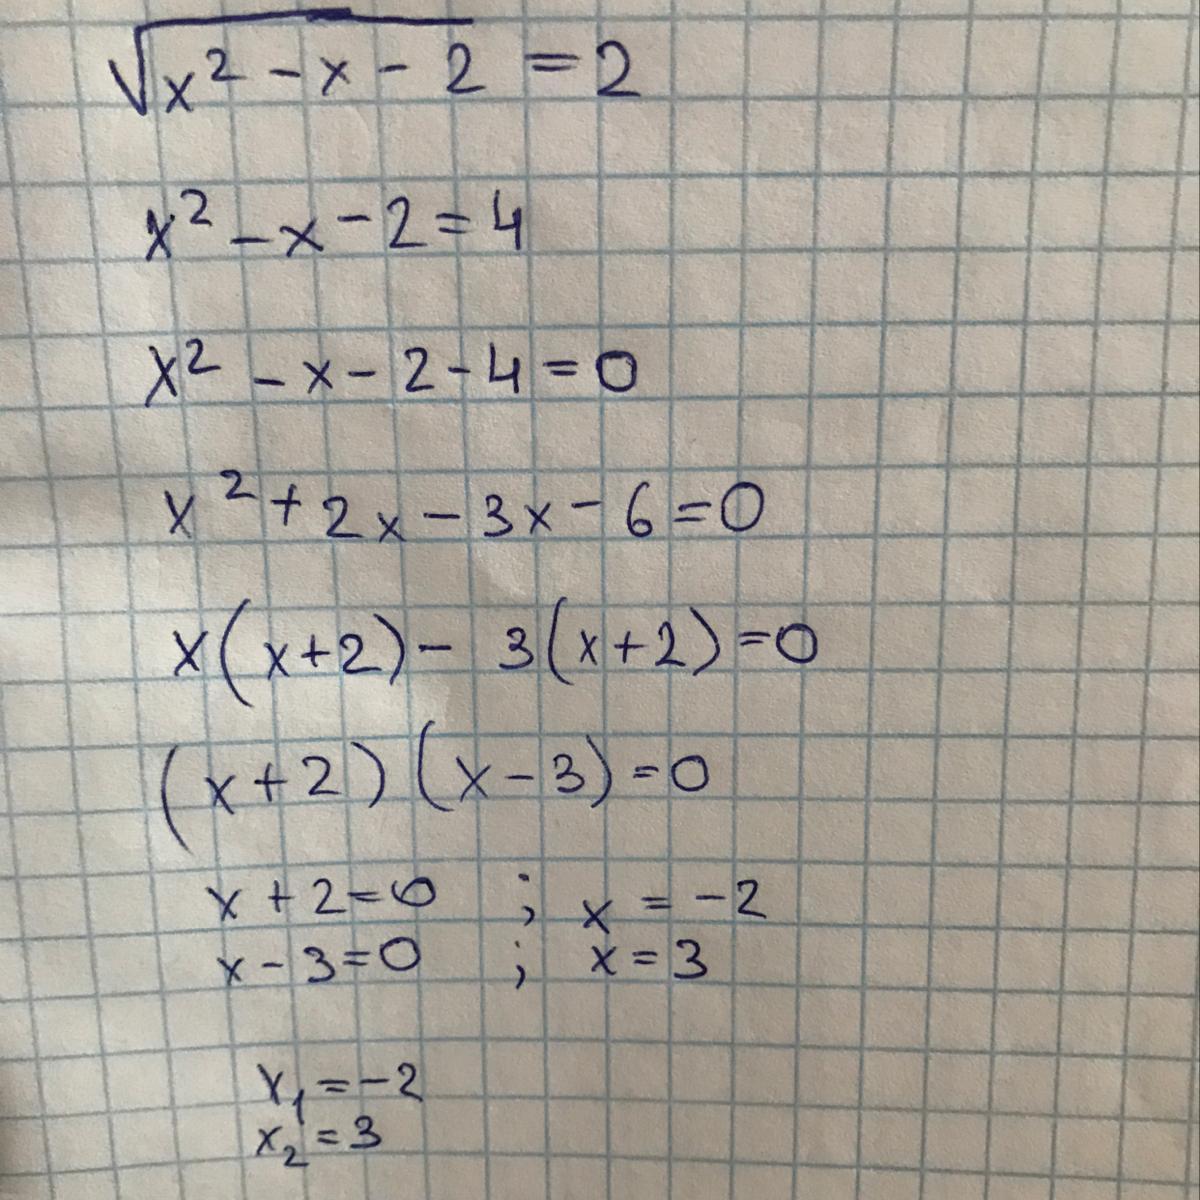 √(x² - x - 2) = 2
x² - x - 2 = 4
x² - x - 2 - 4 = 0
x² + 2x - 3x - 6 = 0
x(x+2) - 3(x+2) = 0
(x+2)(x-3) = 0
x + 2 = 0 ; x = -2
x - 3 = 0 ; x = 3
x₁ = -2
x₂ = 3